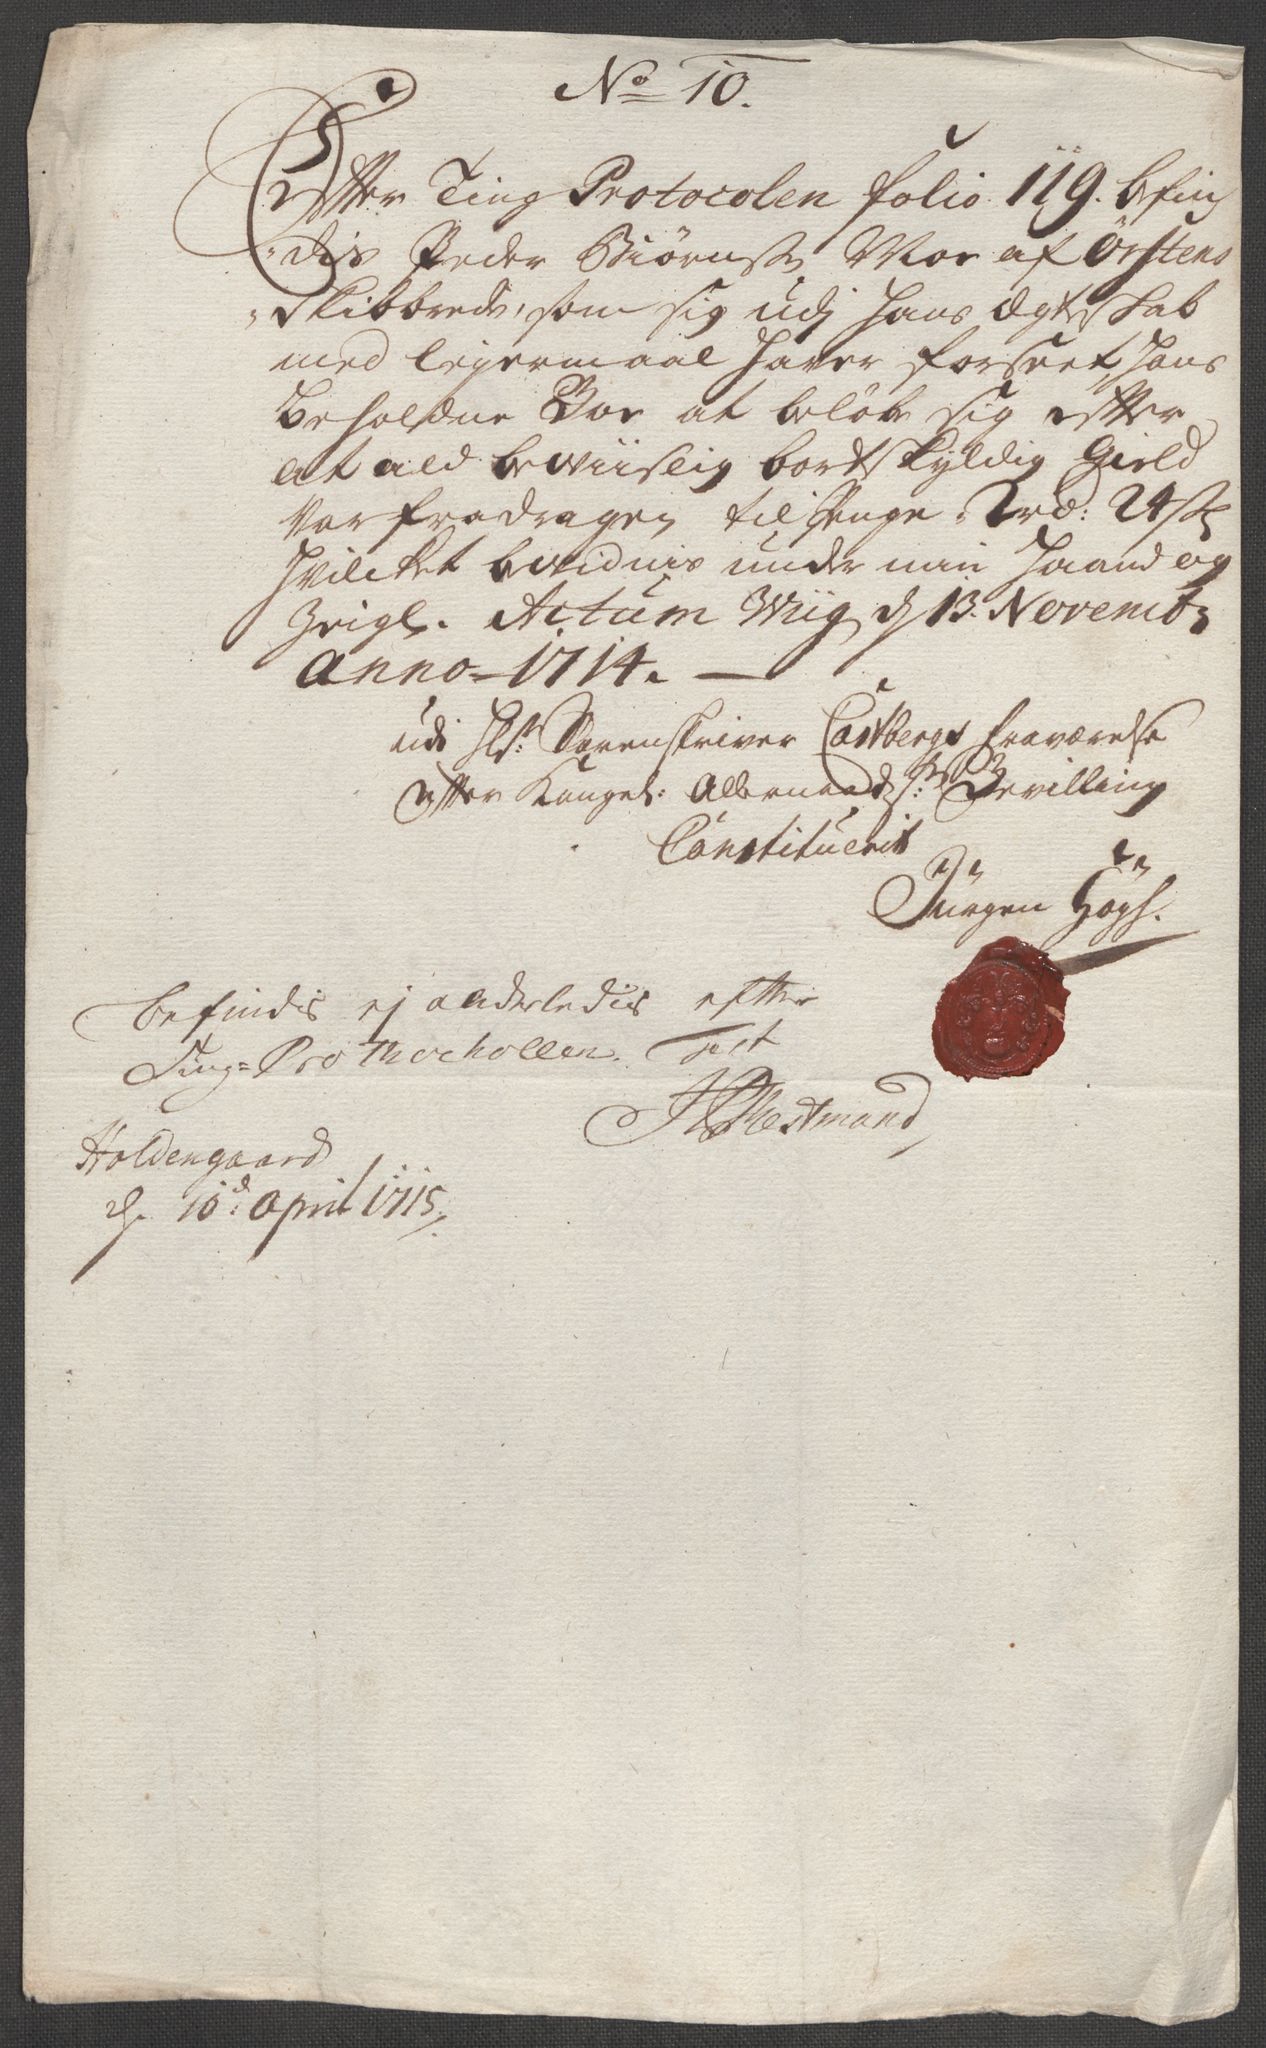 No 10.
Effter Ting Protocolen folio 119. befin
dis Peder Biørns. Mor af Örstens
Skibbrede, som sig udj hans Ægteskab
med leyermaal haver forseet, hans
beholdne Boe at beløbe sig effter
at ald beviislig bortskyldig Gield
var fradragen til penge 2 rd: 24 s
hvilcket bevidnis under min Haand og
Zeigl. Actum Wiig d 13. Novemb
Anno 1714.
udi Hr. Sorenskriver Castbergs fraværelse
effter Kongel: Allernaadigste Bevilling
Constituerit
Jürgen Högh.
befindis ej anderledis effter
Ting=Prothochollen. Test
Westmand
Holdengaard
d. 10d April 1715.